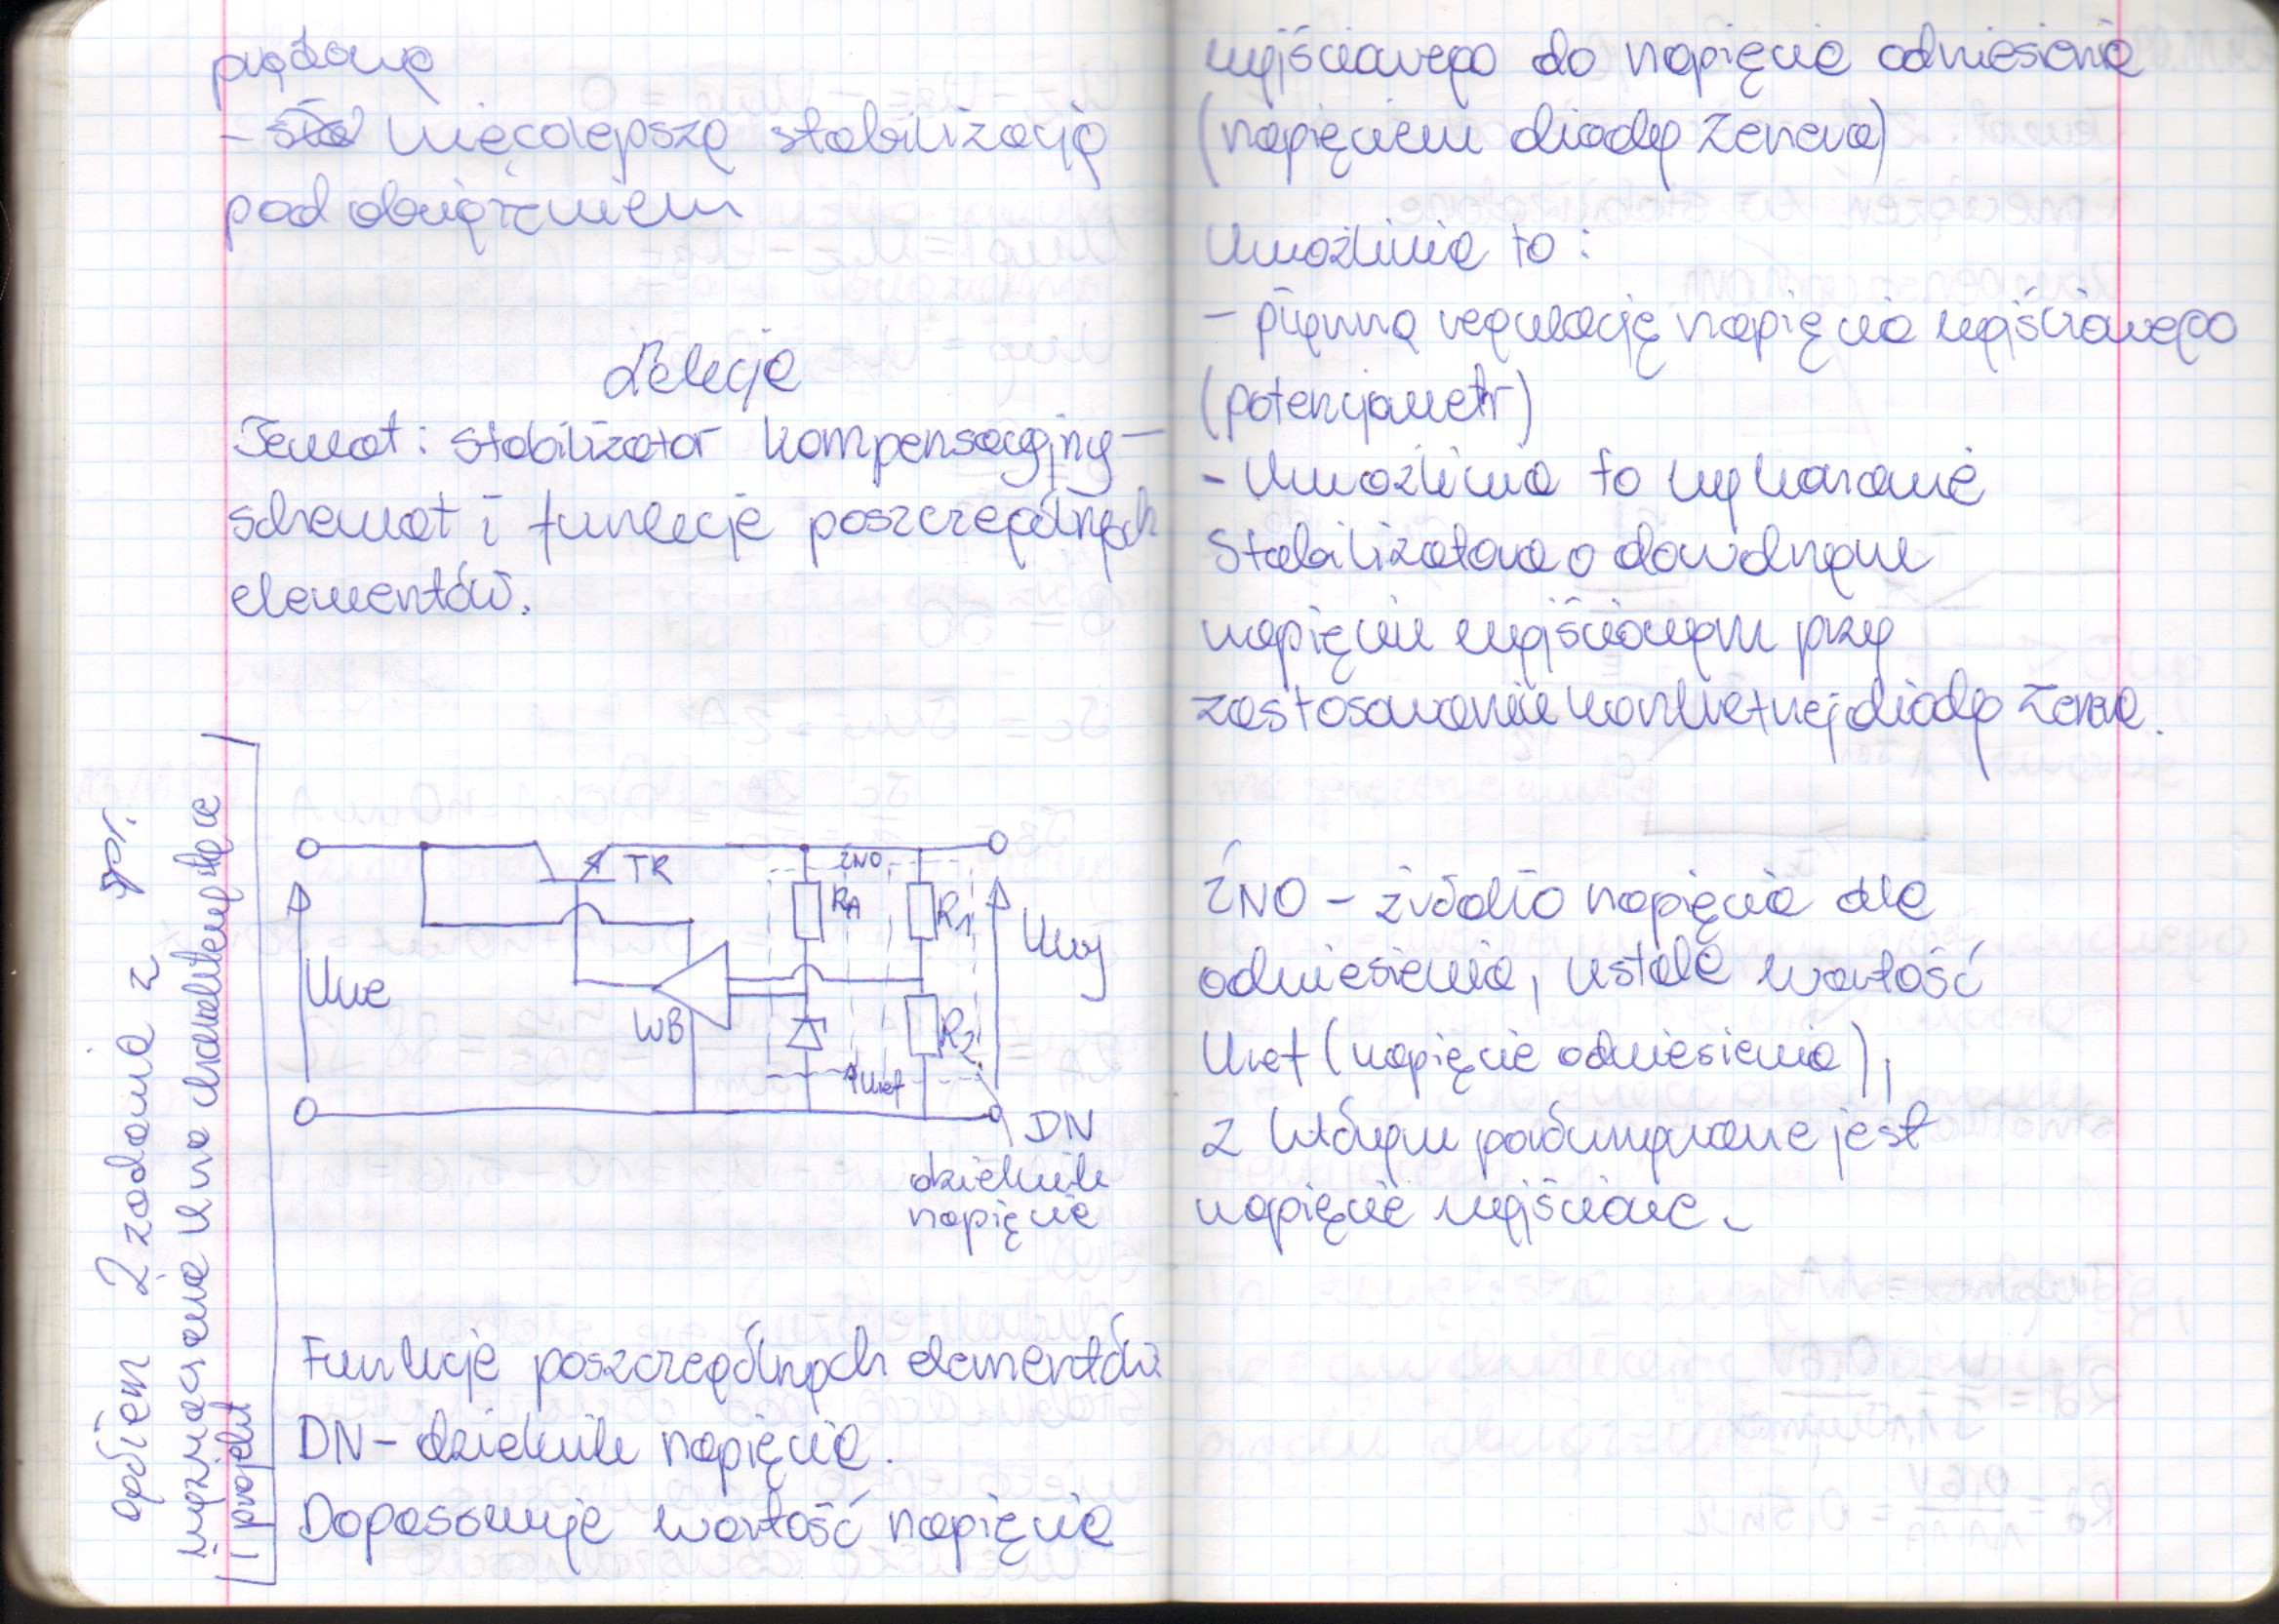 prądową
- nieco lepszą stabilizację
pod obciążeniem
Lekcja
Temat: Stabilizator kompensacyjny -
schemat i funkcje poszczególnych
elementów.
TR
ŹNO
RA
R1
Uwe
Uwy
WB
R2
Uref
DN
dzielnik
napięcia
ogółem 2 zadania z spr.
wyznaczenie Uwe charakterystyce
1 projekt
Funkcje poszczególnych elementów
DN - dzielnik napięcia.
Dopasowuje wartość napięcia
wyjściowego do napięcia odniesienia
(napięciem diody Zenera)
Umożliwia to:
- płynną regulację napięcia wyjściowego
(potencjometr)
- Umożliwia to wykonanie
Stabilizatora o dowolnym
napięciu wyjściowym przy
zastosowaniu konkretnej diody Zenera.
ŹNO - źródło napięcia dla
odniesienia, ustala wartość
Uref (napięcie odniesienia),
z którym porównywane jest
napięcie wyjściowe.